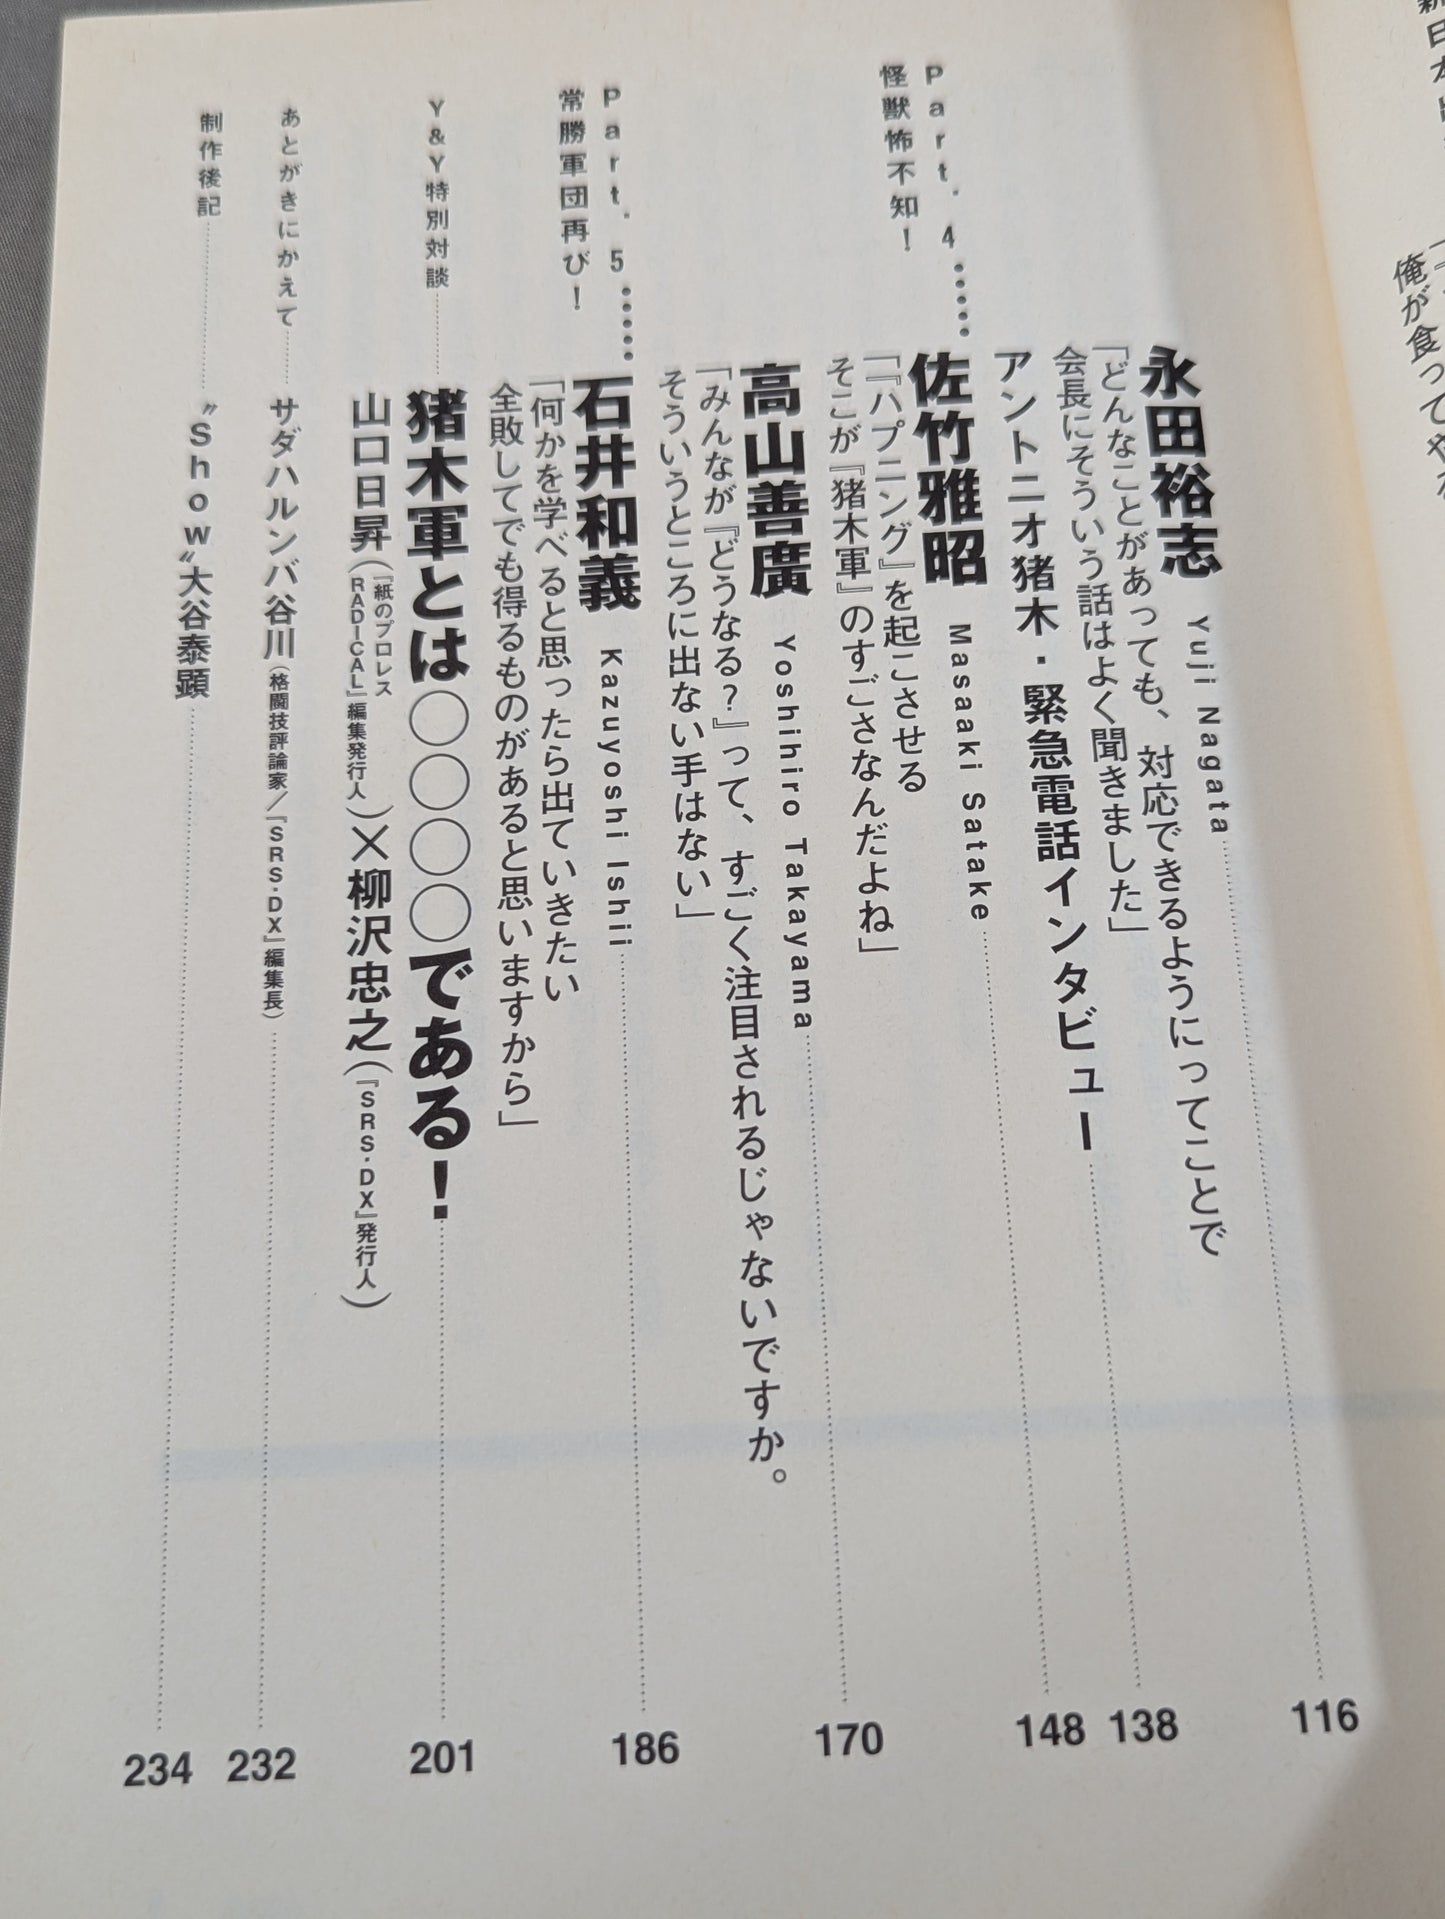 俺が食ってや
永田裕志 Yuji Nagata 116
「どんなことがあっても、対応できるようにってことで
会長にそういう話はよく聞きました」
アントニオ猪木・緊急電話インタビュー 138
Part. 4……
怪獣怖不知！
佐竹雅昭 Masaaki Satake 148
「『ハプニング』を起こさせる
そこが『猪木軍』のすごさなんだよね」
高山善廣 Yoshihiro Takayama 170
「みんなが『どうなる？』って、すごく注目されるじゃないですか。
そういうところに出ない手はない」
Part. 5……
常勝軍団再び！
石井和義 Kazuyoshi Ishii 186
「何かを学べると思ったら出ていきたい
全敗してでも得るものがあると思いますから」
Y&Y特別対談 猪木軍とは〇〇〇〇である！ 201
山口日昇（『紙のプロレスRADICAL』編集発行人）×柳沢忠之（『SRS・DX』発行人）
あとがきにかえて サダハルンバ谷川（格闘技評論家／『SRS・DX』編集長） 232
制作後記 〝Show〟大谷泰顕 234